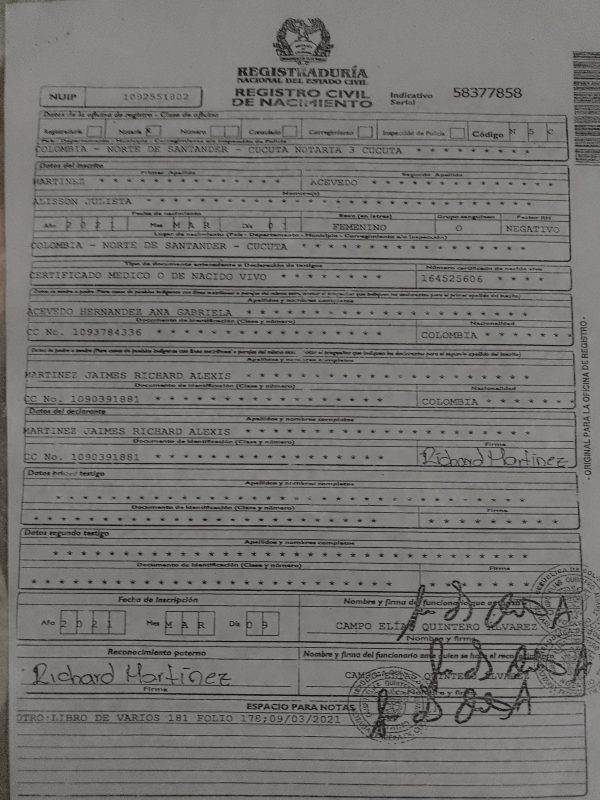 REGISTRADURÍA
NACIONAL DEL ESTADO CIVIL
NUIP 1092551802
REGISTRO CIVIL
DE NACIMIENTO
Indicativo Serial 58377858
Datos de la oficina de registro - Clase de oficina
Registraduría Notaría X Número Consulado Corregimiento Inspección de Policía Código N 5 C
País - Departamento - Municipio - Corregimiento e/o Inspección de Policía
COLOMBIA - NORTE DE SANTANDER - CUCUTA NOTARIA 3 CUCUTA * * * * * * * *
Datos del inscrito
Primer Apellido Segundo Apellido
MARTINEZ * * * * * * * * * * * ACEVEDO * * * * * * * * * * * *
Nombre(s)
ALISSON JULIETA * * * * * * * * * * * * * * * * * * * * * * * *
Fecha de nacimiento Sexo (en letras) Grupo sanguíneo Factor RH
Año 2021 Mes MAR Día 01 FEMENINO O NEGATIVO
Lugar de nacimiento (País - Departamento - Municipio - Corregimiento e/o Inspección)
COLOMBIA - NORTE DE SANTANDER - CUCUTA * * * * * * * * * * * * * * *
Tipo de documento antecedente o Declaración de testigos Número certificado de nacido vivo
CERTIFICADO MEDICO O DE NACIDO VIVO * * * * * * * 164525606 * * * *
Apellidos y nombres completos
ACEVEDO HERNANDEZ ANA GABRIELA * * * * * * * * * * * * * * * * * *
Documento de identificación (Clase y número) Nacionalidad
CC No. 1093784336 * * * * * * * * * * * * COLOMBIA * * * * *
Apellidos y nombres completos
MARTINEZ JAIMES RICHARD ALEXIS * * * * * * * * * * * * * * * * * *
Documento de identificación (Clase y número) Nacionalidad
CC No. 1090391881 * * * * * * * * * * * * COLOMBIA * * * * *
Datos del declarante
Apellidos y nombres completos
MARTINEZ JAIMES RICHARD ALEXIS * * * * * * * * * * * * * * * * * *
Documento de identificación (Clase y número) Firma
CC No. 1090391881 * * * * * * * * * * * * Richard Martínez
Datos primer testigo
Apellidos y nombres completos
* * * * * * * * * * * * * * * * * * * * * * * * * * * *
Documento de identificación (Clase y número) Firma
* * * * * * * * * * * * * * * * * * * * * * * * * * * *
Datos segundo testigo
Apellidos y nombres completos
* * * * * * * * * * * * * * * * * * * * * * * * * * * *
Documento de identificación (Clase y número) Firma
* * * * * * * * * * * * * * * * * * * * * * * * * * * *
Fecha de inscripción Nombre y firma del funcionario que
Año 2021 Mes MAR Día 09 CAMPO ELÍAS QUINTERO ALVAREZ
Nombre y firma
Reconocimiento paterno Nombre y firma del funcionario ante quien se hace el reconocimiento
Richard Martínez CAMPO ELIAS QUINTERO ALVAREZ
Firma Nombre y firma
ESPACIO PARA NOTAS
OTRO:LIBRO DE VARIOS 181 FOLIO 178;09/03/2021
- ORIGINAL PARA LA OFICINA DE REGISTRO -